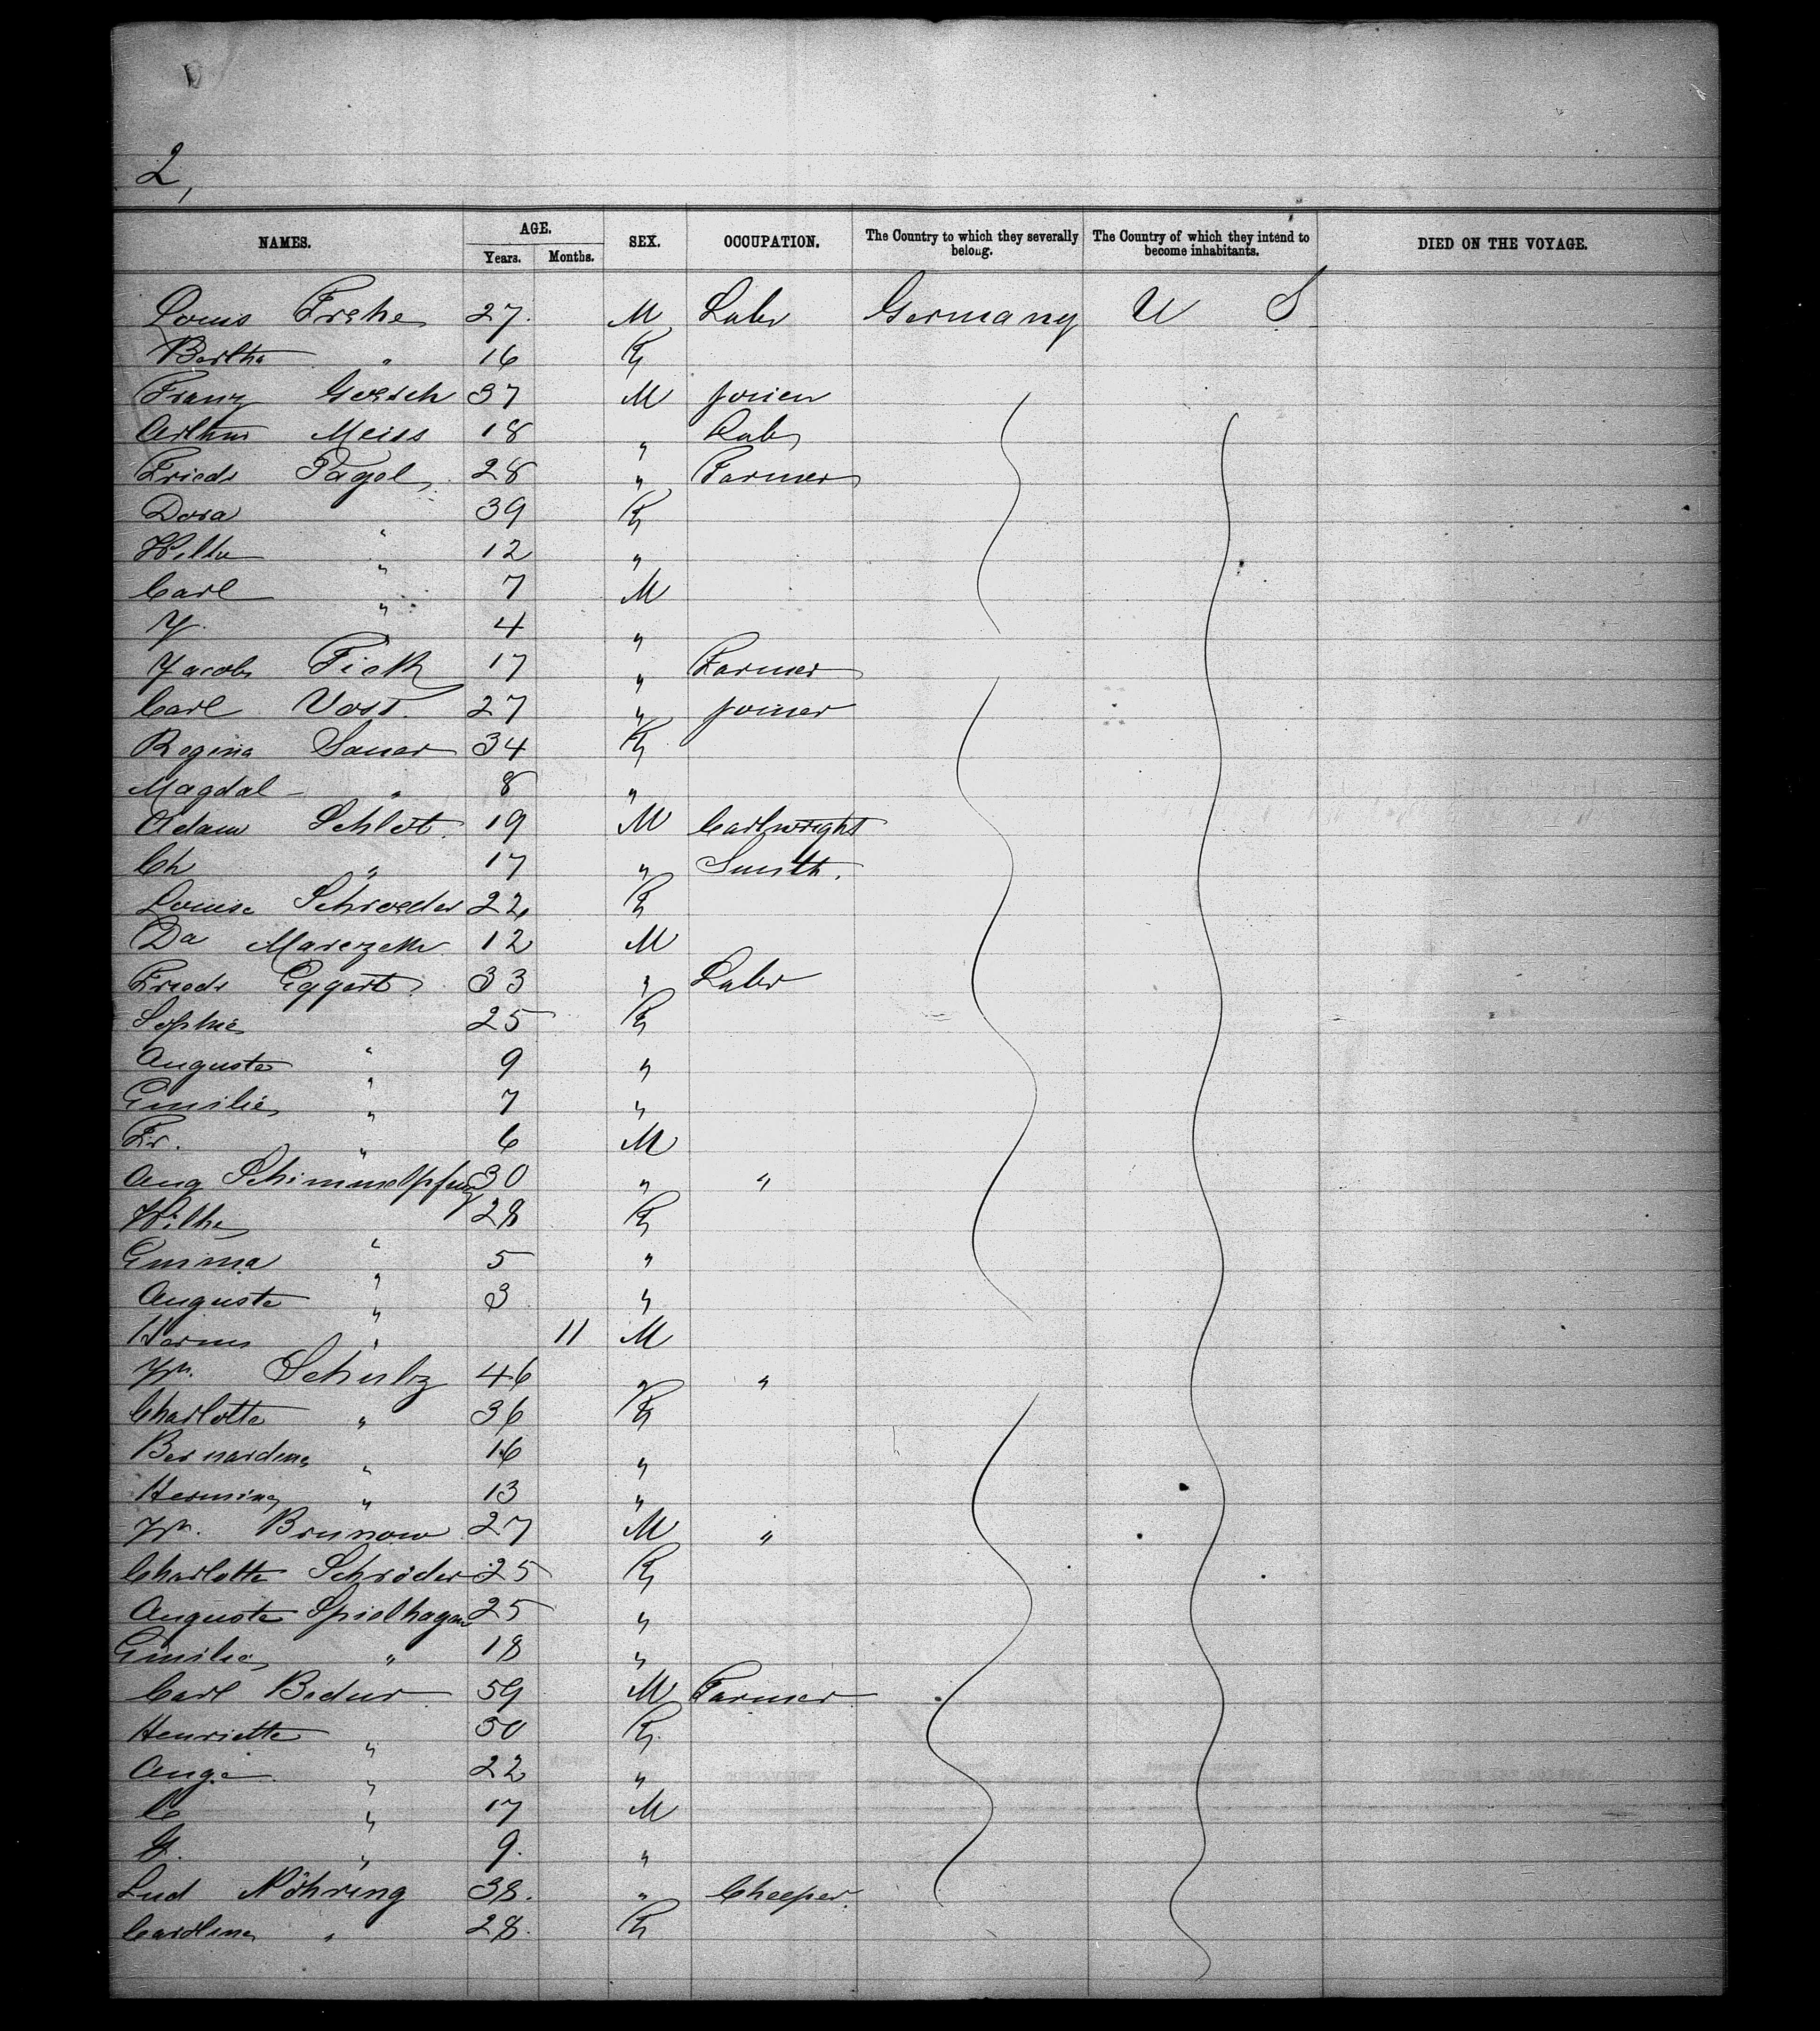 2,
NAMES. AGE. SEX. OCCUPATION. The Country to which they severally belong. The Country of which they intend to become inhabitants. DIED ON THE VOYAGE.
Years. Months.
Louis Frehe 27. M Labr Germany U S
Bertha " 16
Franz Goesch 37 M
Arthur Meiss 18 " Labr
Friedr Pagel 28 " Farmer
Dora " 39
12 "
Carl " 7 M
Y. " 4 "
Jacob Fick 17 " Farmer
Carl Vost. 27 " joiner
Regina Sauer 34
Magdal " 8 "
Adam Schlot. 19 M Cartwright
Ch " 17 " Smith.
Louise Schroeder 22
Da 12 M
Friedr Eggert 33 " Labr
Sophie " 25
Auguste " 9 "
Emilie " 7 "
Fr. " 6 M
Aug Schimmelpfung 30 " "
Wilhe " 28
Emma " 5 "
Auguste " 3 "
" 11 M
Schulz 46 " "
Charlotte " 36
Bernardine " 16 "
Hermine " 13 "
Brunow 27 M "
Charlotte Schröder 25
Auguste Spielhagen 25 "
Emilie " 18 "
Carl Bedur 59 M Farmer
Henriette " 50
Auge " 22 "
C " 17 M
G. " 9. "
Lud Nöhring 38. " Cheeper
Caroline " 28.